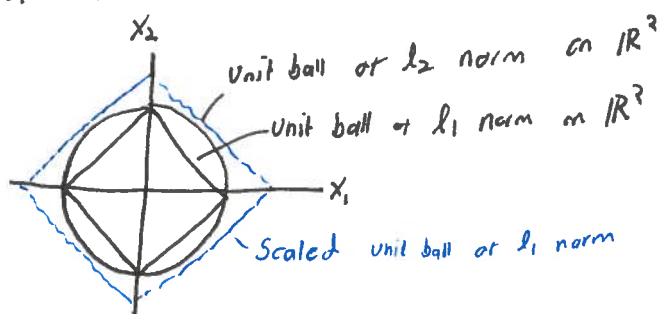 X2
Unit ball of l2 norm on IR2
Unit ball of l1 norm on IR2
X1
Scaled unit ball of l1 norm